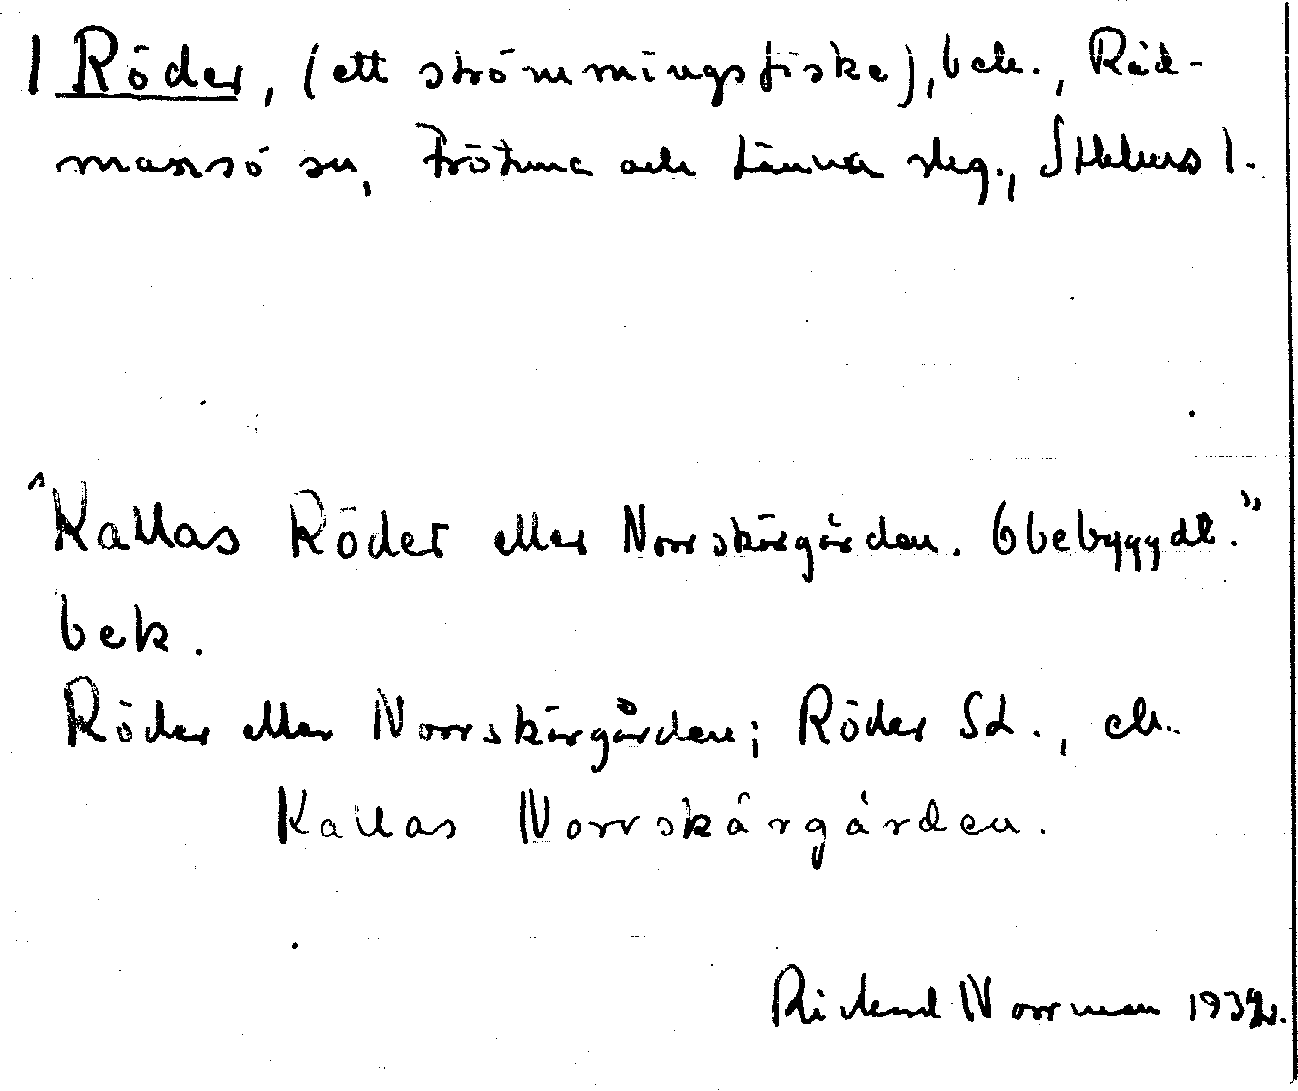 1 Röder, (ett strömmingsfiske), bek., Råd-
mansö sn, Frötuna och Länna skg., Sthlms l.
"Kallas Röder eller Norrskärgården. Obebyggdt."
bek.
Röder eller Norrskärgården; Röder Sd., ek.
Kallas Norrskärgården.
Rickard Norrman 1932.